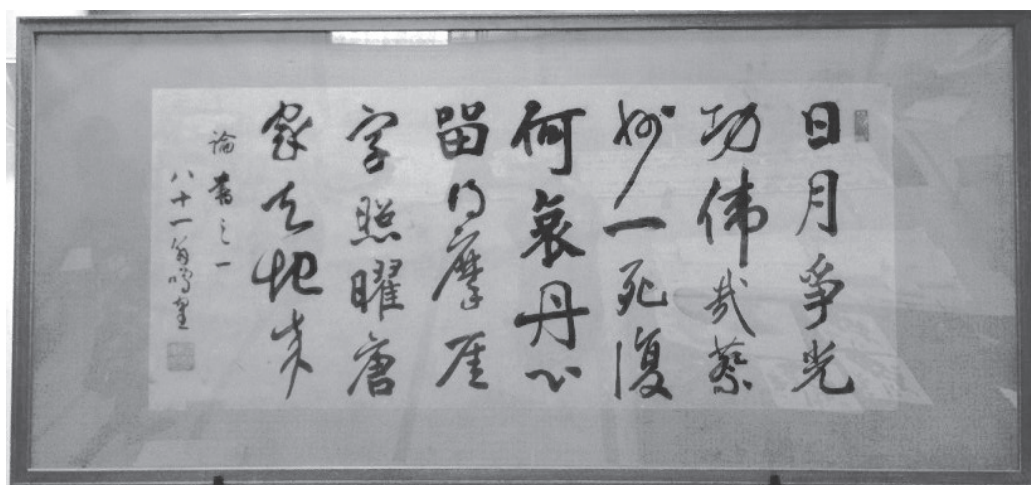 日月爭光
功偉哉蔡
州一死復
何哀丹心
留得摩厓
字照曜唐
家天地来
論書之一
八十一翁鳴